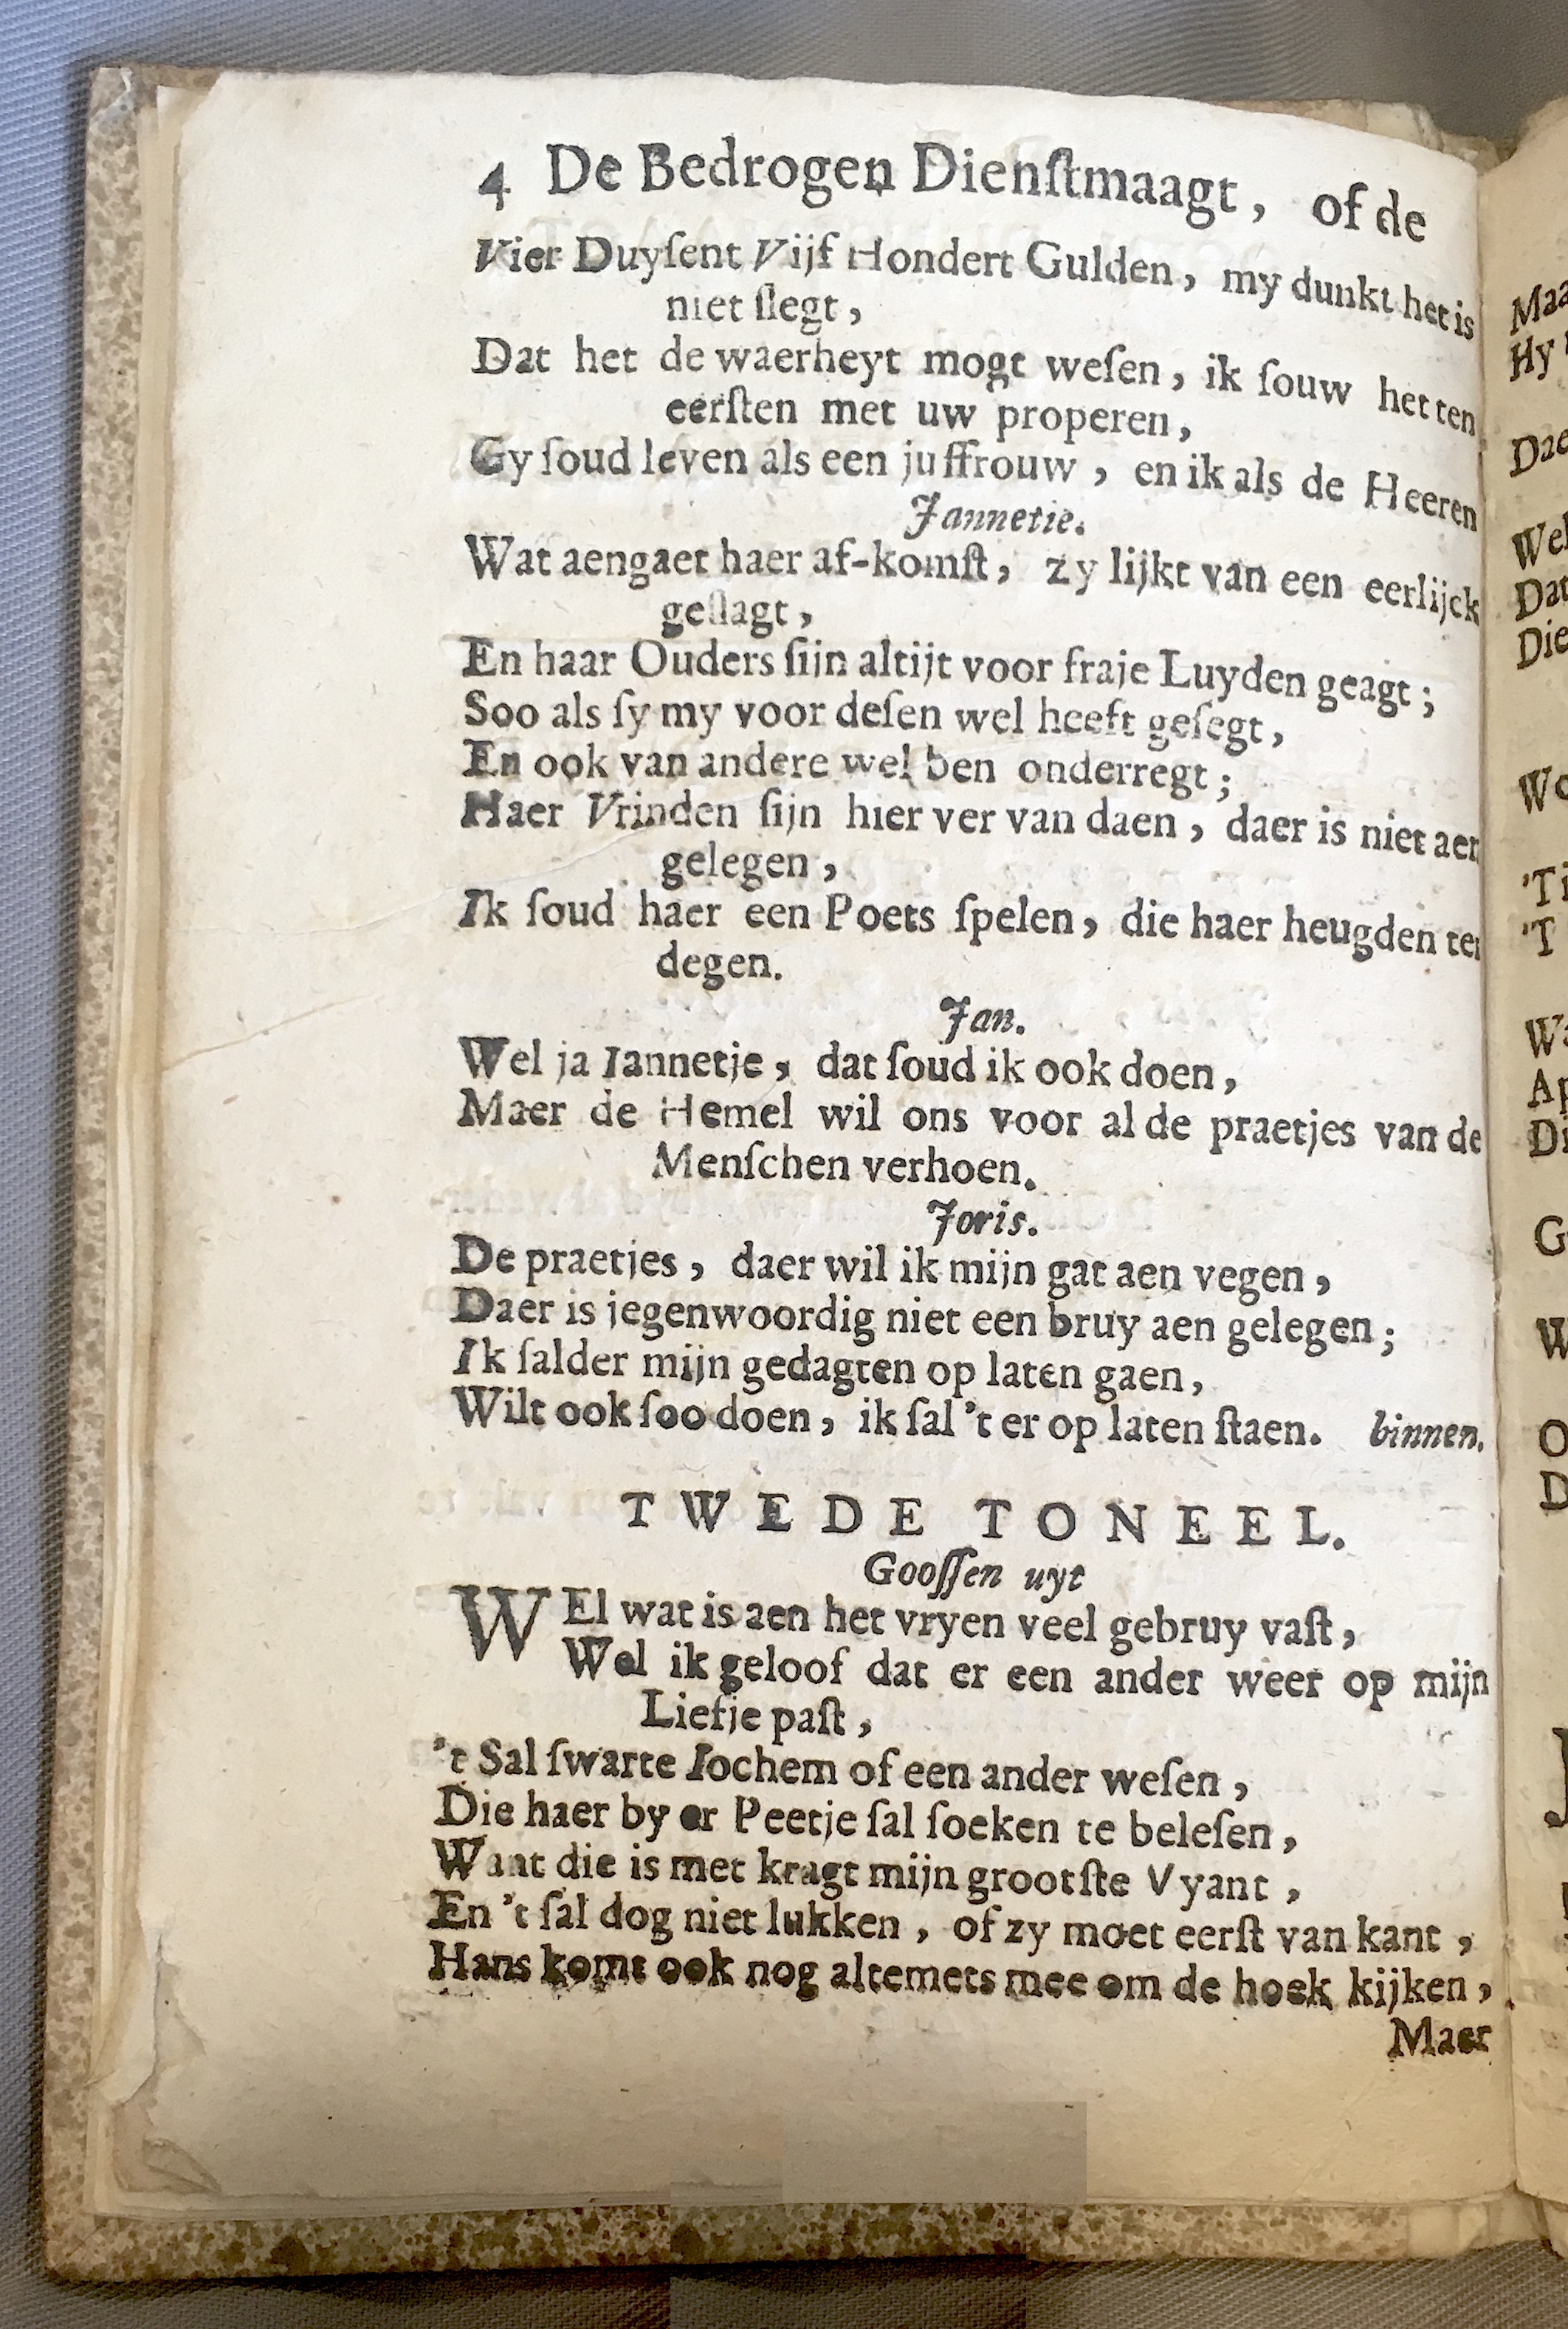 4 De Bedrogen Dienſtmaagt, of de
Vier Duyſent Vijf Hondert Gulden, my dunkt het is
niet ſlegt,
Dat het de waerheyt mogt weſen, ik ſouw het ten
eerſten met uw properen,
Gy ſoud leven als een juffrouw, en ik als de Heeren
Jannetie.
Wat aengaet haer af-komſt, zy lijkt van een eerlijck
geſlagt,
En haar Ouders ſijn altijt voor fraje Luyden geagt;
Soo als ſy my voor deſen wel heeft geſegt,
En ook van andere wel ben onderregt;
Haer Vrinden ſijn hier ver van daen, daer is niet aen
gelegen,
Ik ſoud haer een Poets ſpelen, die haer heugden ten
degen.
Jan.
Wel ja Iannetje, dat ſoud ik ook doen,
Maer de Hemel wil ons voor al de praetjes van de
Menſchen verhoen.
Joris.
De praetjes, daer wil ik mijn gat aen vegen,
Daer is jegenwoordig niet een bruy aen gelegen;
Ik ſalder mijn gedagten op laten gaen,
Wilt ook ſoo doen, ik ſal 't er op laten ſtaen. binnen.
TWEDE TONEEL.
Gooſſen uyt
WEl wat is aen het vryen veel gebruy vaſt,
Wel ik geloof dat er een ander weer op mijn
Liefje paſt,
't Sal ſwarte Iochem of een ander weſen,
Die haer by er Peetje ſal ſoeken te beleſen,
Want die is met kragt mijn grootſte Vyant,
En 't ſal dog niet lukken, of zy moet eerſt van kant,
Hans komt ook nog altemets mee om de hoek kijken,
Maer
Hy
Wel
Dat
Die
'T